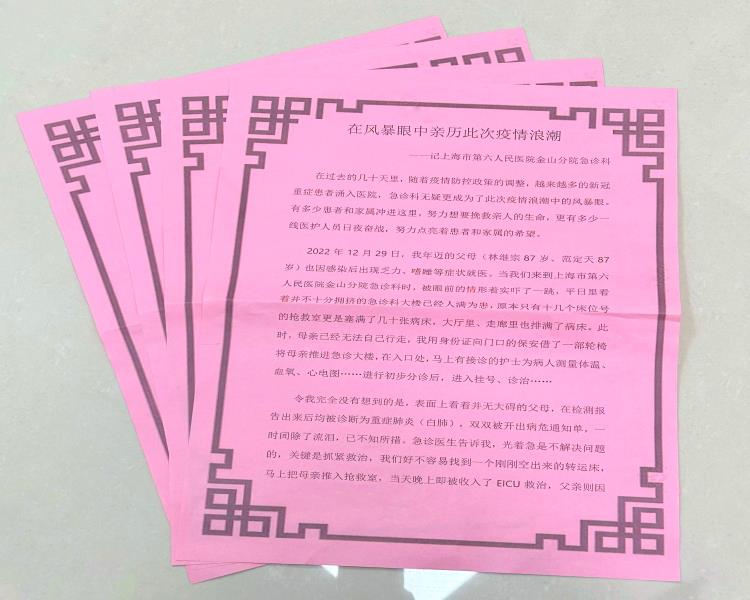 在风暴眼中亲历此次疫情浪潮
——记上海市第六人民医院金山分院急诊科
在过去的几十天里，随着疫情防控政策的调整，越来越多的新冠
重症患者涌入医院，急诊科无疑更成为了此次疫情浪潮中的风暴眼。
有多少患者和家属冲进这里，努力想要挽救亲人的生命，更有多少一
线医护人员日夜奋战，努力点亮着患者和家属的希望。
2022 年 12 月 29 日，我年迈的父母（林继宗 87 岁、范定天 87
岁）也因感染后出现乏力、嗜睡等症状就医。当我们来到上海市第六
人民医院金山分院急诊科时，被眼前的情形着实吓了一跳，平日里看
着并不十分拥挤的急诊科大楼已经人满为患，原本只有十几个床位号
的抢救室更是塞满了几十张病床，大厅里、走廊里也排满了病床。此
时，母亲已经无法自己行走，我用身份证向门口的保安借了一部轮椅
将母亲推进急诊大楼，在入口处，马上有接诊的护士为病人测量体温、
血氧、心电图……进行初步分诊后，进入挂号、诊治……
令我完全没有想到的是，表面上看着并无大碍的父母，在检测报
告出来后均被诊断为重症肺炎（白肺），双双被开出病危通知单，一
时间除了流泪，已不知所措。急诊医生告诉我，光着急是不解决问题
的，关键是抓紧救治，我们好不容易找到一个刚刚空出来的转运床，
马上把母亲推入抢救室，当天晚上即被收入了 EICU 救治，父亲则因